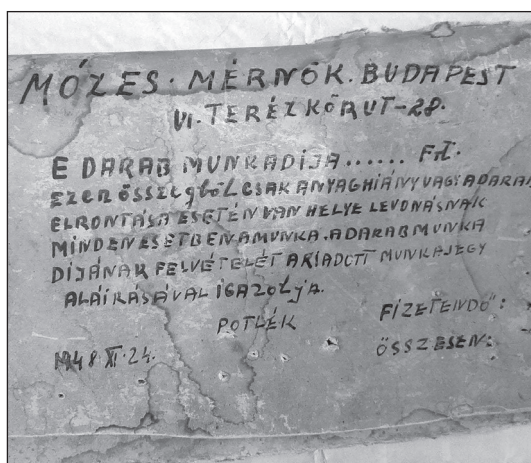 MÓZES. MÉRNÖK. BUDAPEST
VI. TERÉZ KÖRUT-28.
E DARAB MUNKADIJA...... Ft.
EZEN ÖSSZEGBŐL CSAK ANYAGHIÁNY VAGY A DARAB
ELRONTÁSA ESETÉN VAN HELYE LEVONÁSNAK
MINDEN ESETBEN A MUNKA. A DARAB MUNKA
DÍJÁNAK FELVÉTELÉT A KIADOTT MUNKAJEGY
ALÁIRÁSÁVAL IGAZOLJA.
POTLÉK
FIZETENDŐ:
1948. XI. 24.
ÖSSZESEN: